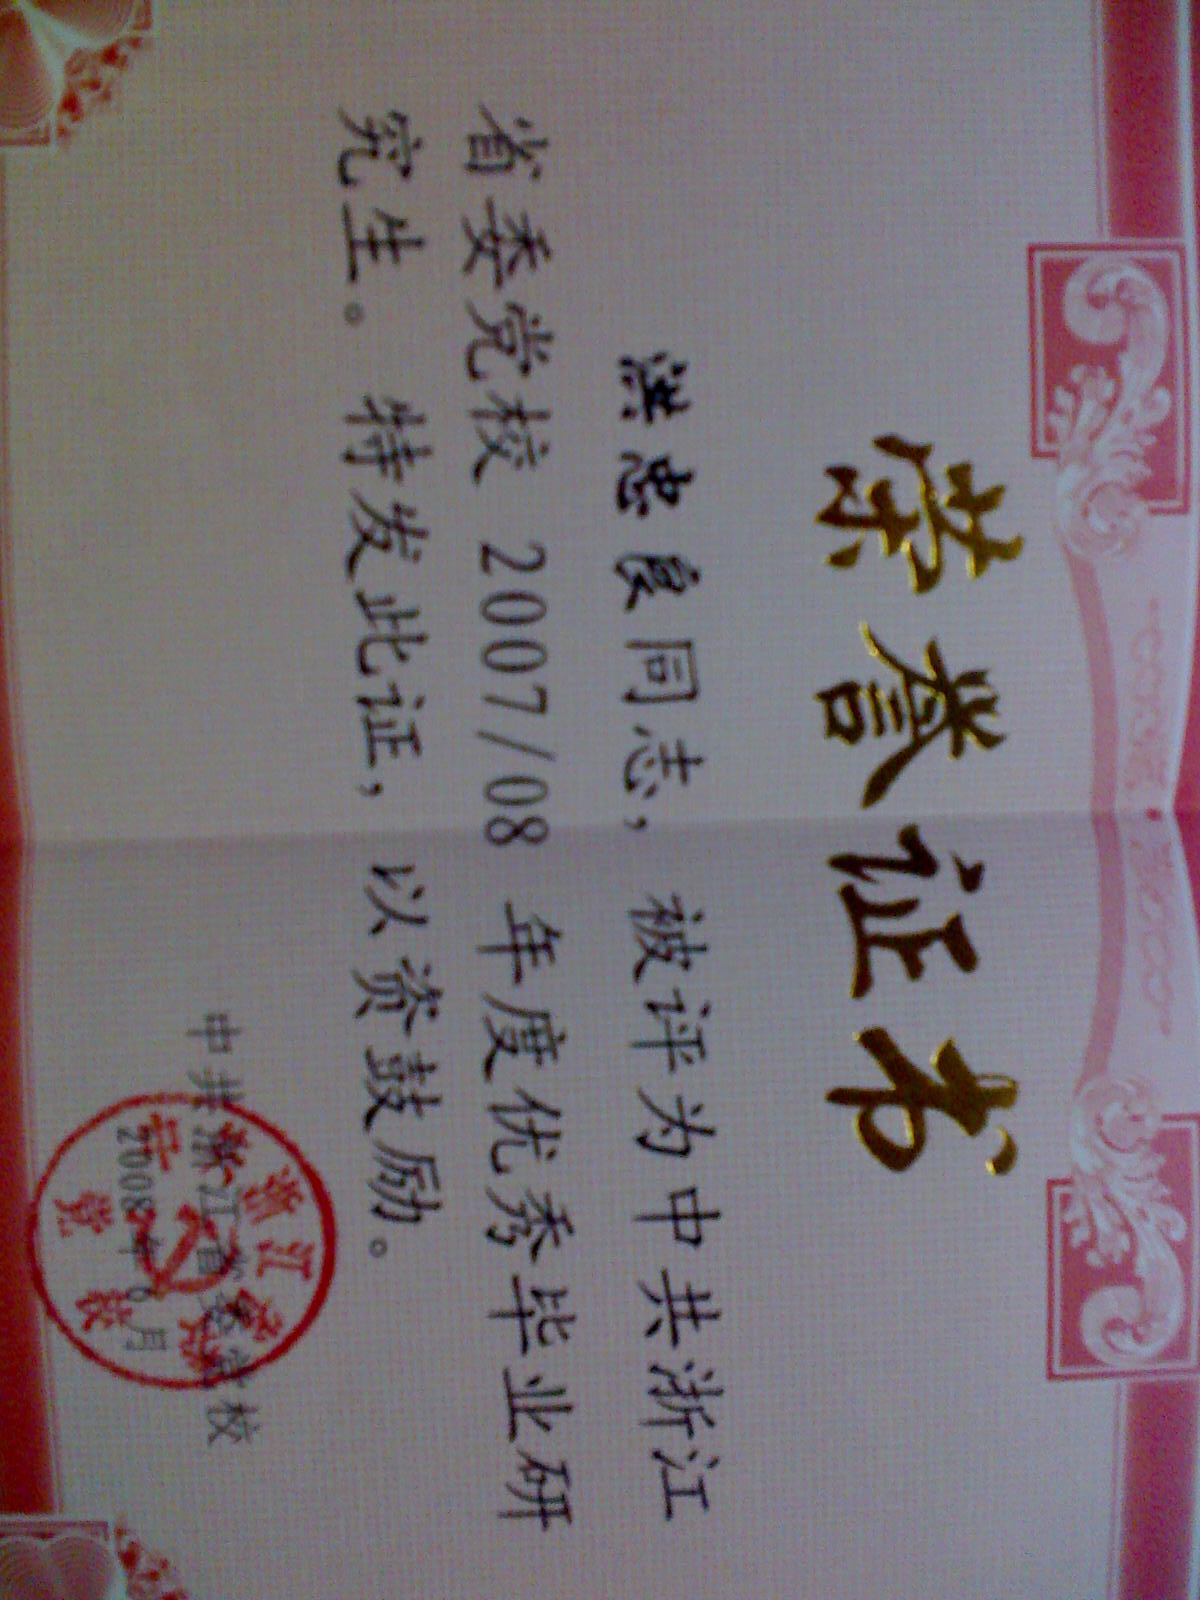 荣誉证书
洪忠良同志，被评为中共浙江
省委党校 2007/08 年度优秀毕业研
究生。特发此证，以资鼓励。
中共浙江省委党校
2008年6月